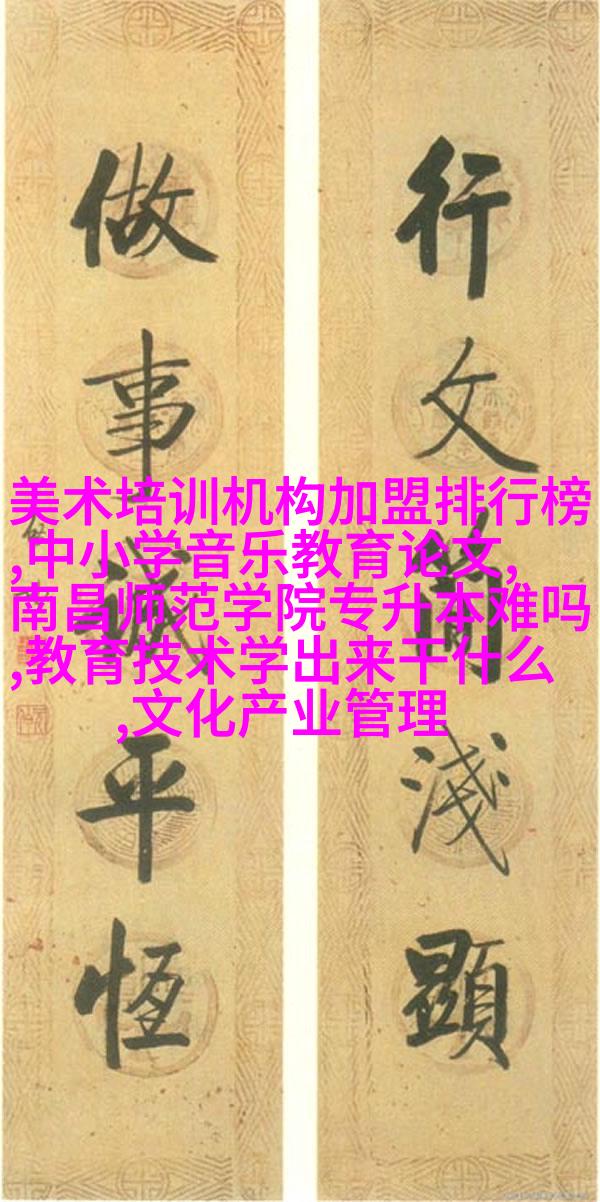 行文簡淺顯
做事誠平恆
美术培训机构加盟排行榜
,中小学音乐教育论文,
南昌师范学院专升本难吗
,教育技术学出来干什么
,文化产业管理